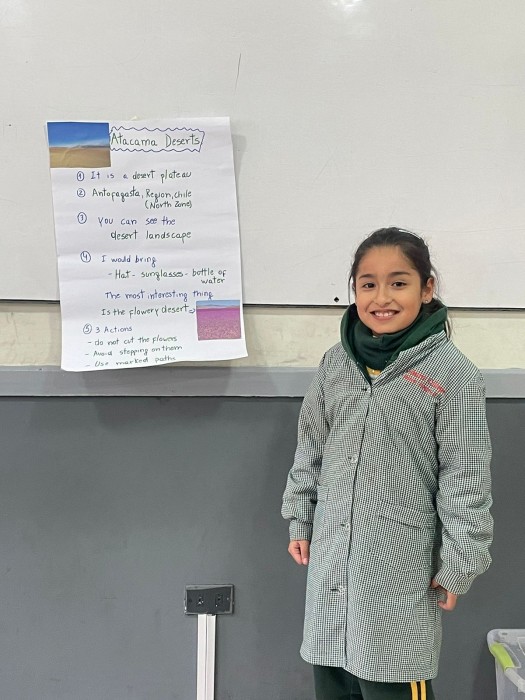 Atacama Deserts
① It is a desert plateau
② Antofagasta, Region, chile
(North Zone)
③ you can see the
desert landscape
④ I would bring
- Hat - sunglasses - bottle of
water
The most interesting thing
Is the flowery desert
⑤ 3 Actions
- do not cut the flowers
- Avoid stepping on them
- Use marked paths